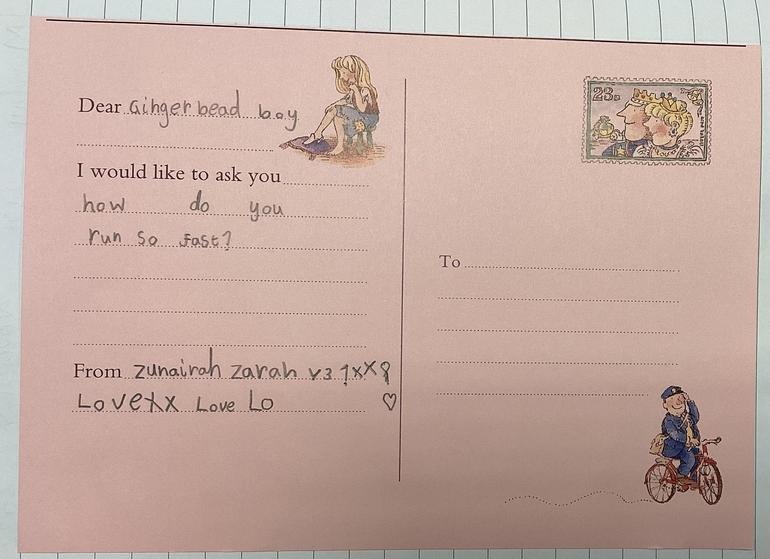 Dear Gingerbead boy
I would like to ask you
how do you
run so fast?
From zunairah zarah
Lovexx Love Lo
23p
To